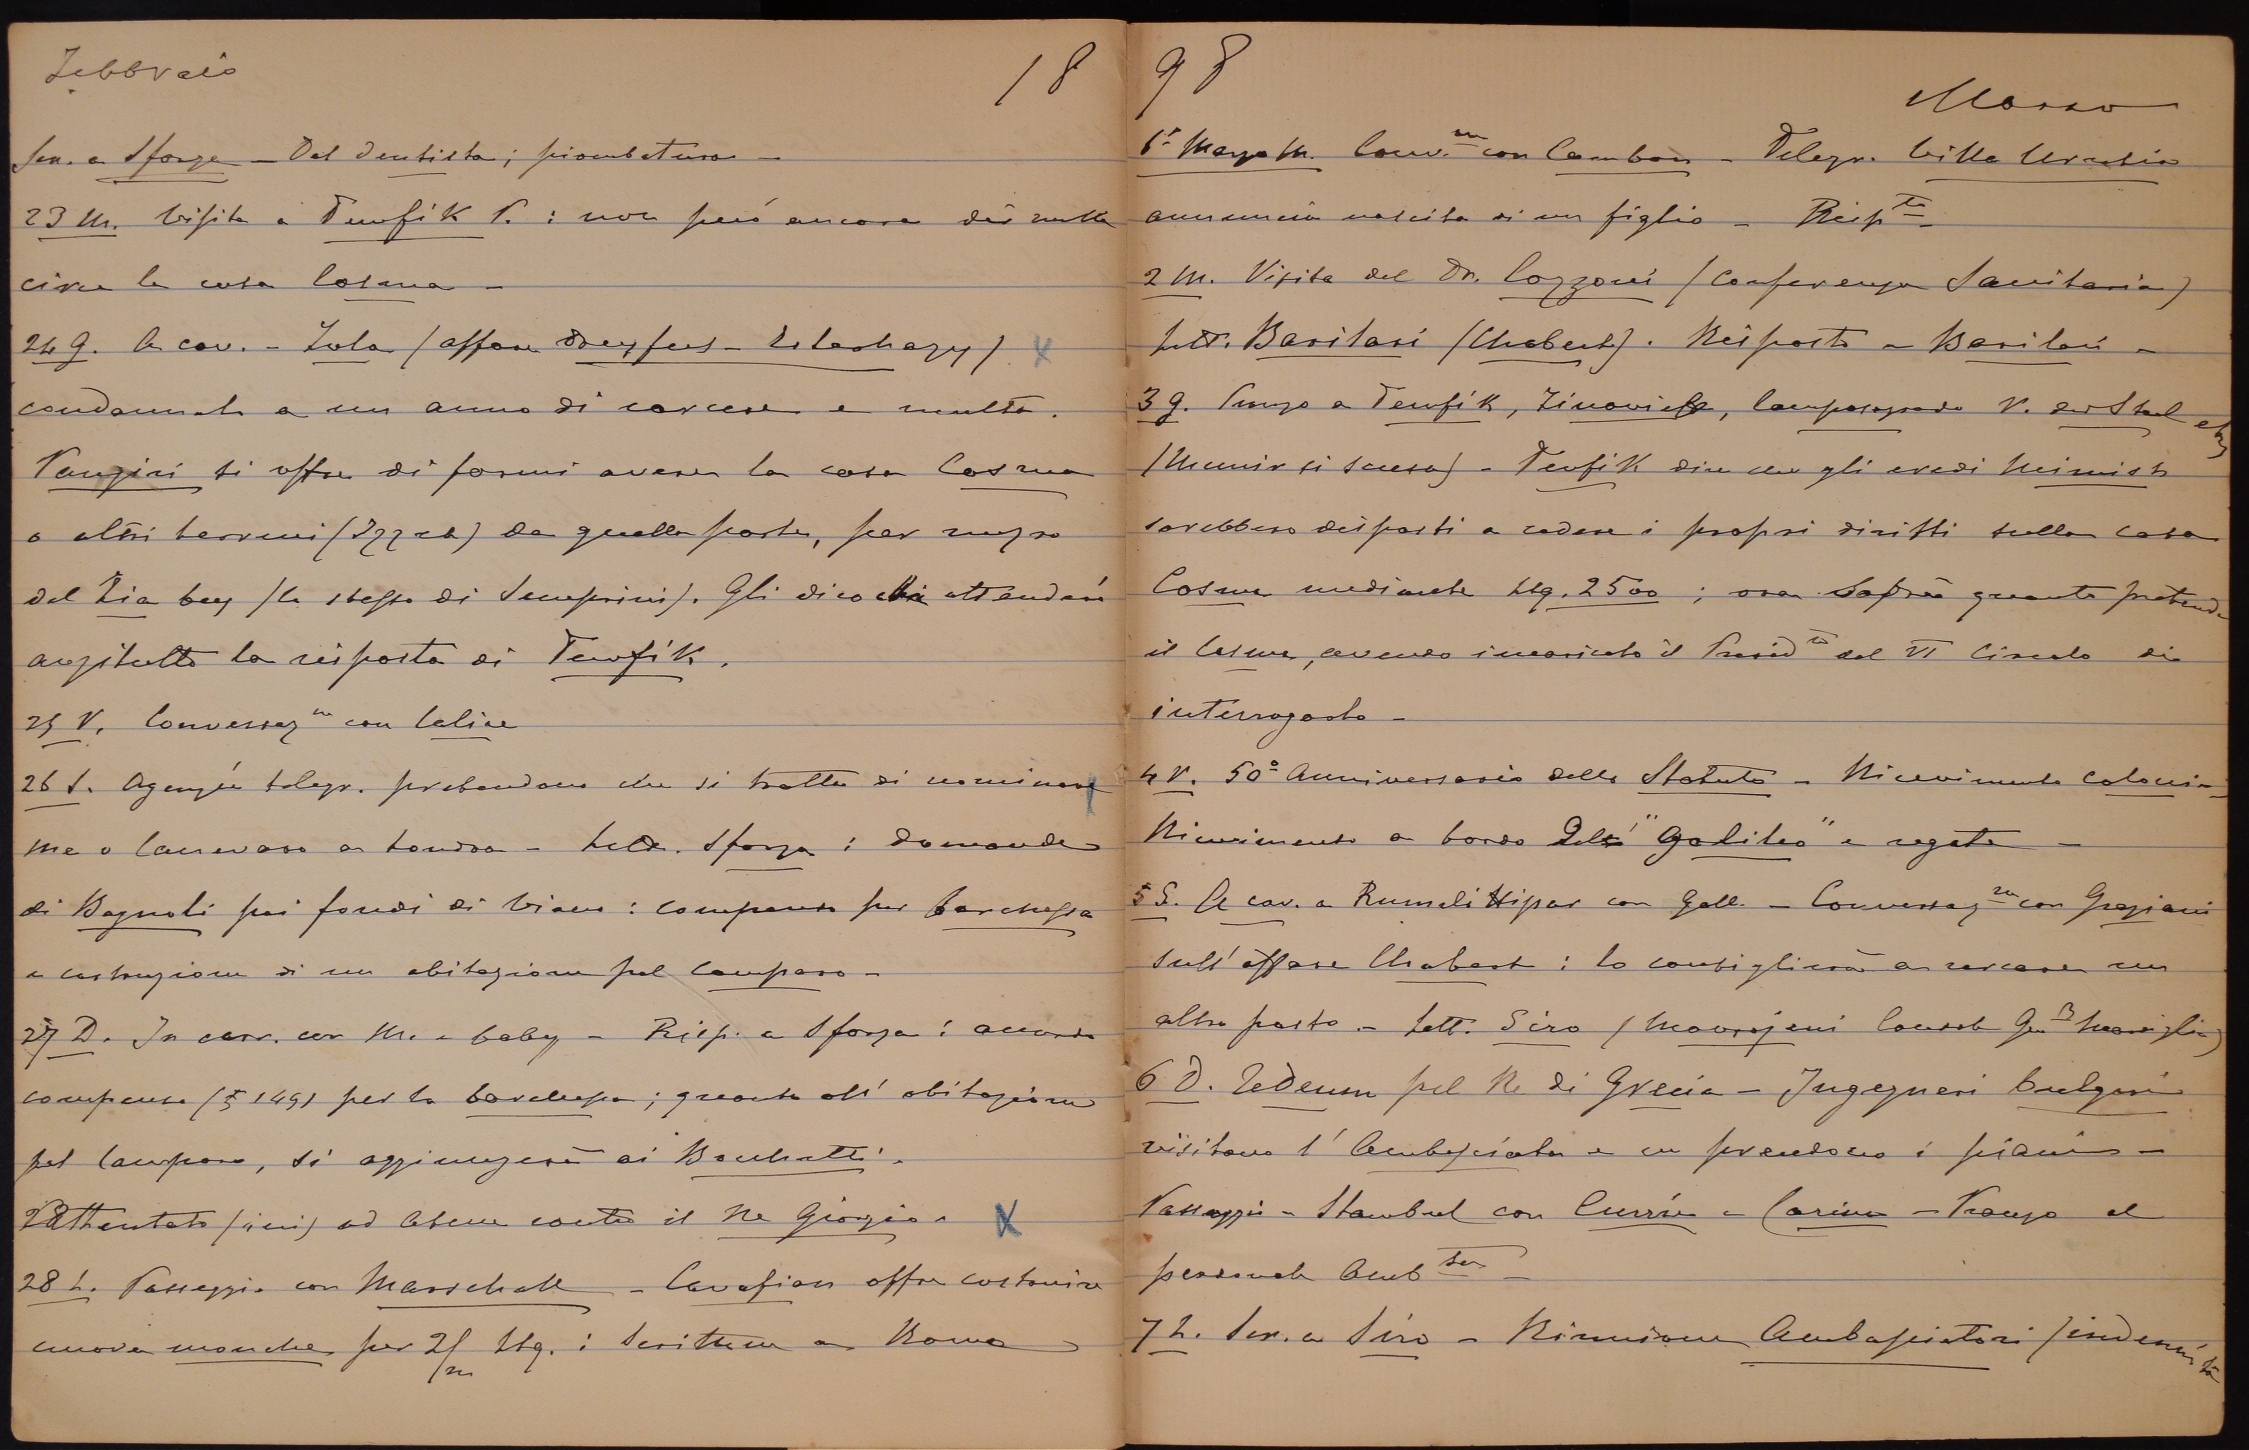 Febbraio 18
Scr. a Sforza – Dal dentista; piombatura –
23 M. Visita a Tewfik P. : non può ancora dir nulla
circa la casa Cosma –
24 G. A cav. – Zola (affare Dreyfus – Esterhazy)
condannato a un anno di carcere e multa.
Pangiri si offre di farmi avere la casa Cosma
o altri terreni (Izzet) da quella parte, per mezzo
del Zia bey (lo stesso di Semprini). Gli dico che attenderò
anzitutto la risposta di Tewfik.
25 V. Conversaz.ne con Calice
26 S. Agenzie telegr. pretendono che si tratta di nominare
me o Canevaro a Londra – Lett. Sforza : domande
di Bagnoli pei fondi di : compenso per barchessa
e costruzione di un abitazione pel Campara –
27 D. In carr. con M. e baby – Risp. a Sforza : accordo
compenso (£ 149) per la barchessa; quanto all' abitazione
pel Campara, si aggiungerà ai Bauchatti.
Attentato (ieri) ad Atene contro il Re Giorgio.
28 L. Passeggio con Marschall – Cavafian offre costruire
nuova mouche per 2/m Ltq. : Scritture a Roma
98 Marzo
1° Marzo M. Conv.ne con Cambon – Telegr. Villa Urutia
annuncia nascita di un figlio – Risp.ta –
2 M. Visita del Dr. Cozzoni (Conferenza Sanitaria)
Lett. Barilari (Chabert). Risposto a Barilari –
3 G. Pranzo a Tewfik, Zinovieff, Camposagrado V. der Stael etc.
(Munir si scusa) – Tewfik dice che gli eredi
sarebbero disposti a cedere i propri diritti sulla casa
Cosma mediante Ltq. 2500 ; ora saprà quanto pretende
il Cosma, avendo incaricato il Presid.te del VI Circolo di
interrogarlo –
4 V. 50° Anniversario dello Statuto – Ricevimento colonia –
Ricevimento a bordo del "Galileo" e regate –
5 S. A cav. a Rumeli Hissar con Gall. – Conversaz.ne con Graziani
sull' affare Chabert : lo consiglierà a cercare un
altro posto. – Lett. Siro (Mavrojeni Console Gen.l Marsiglia)
6 D. Tedeum pel Re di Grecia – Ingegneri bulgari
visitano l' Ambasciata e ne prendono i piani –
Passeggio a Stambul con Currie e Carino – Pranzo al
personale Amb.ta –
7 L. Scr. a Siro – Riunione Ambasciatori (indennità